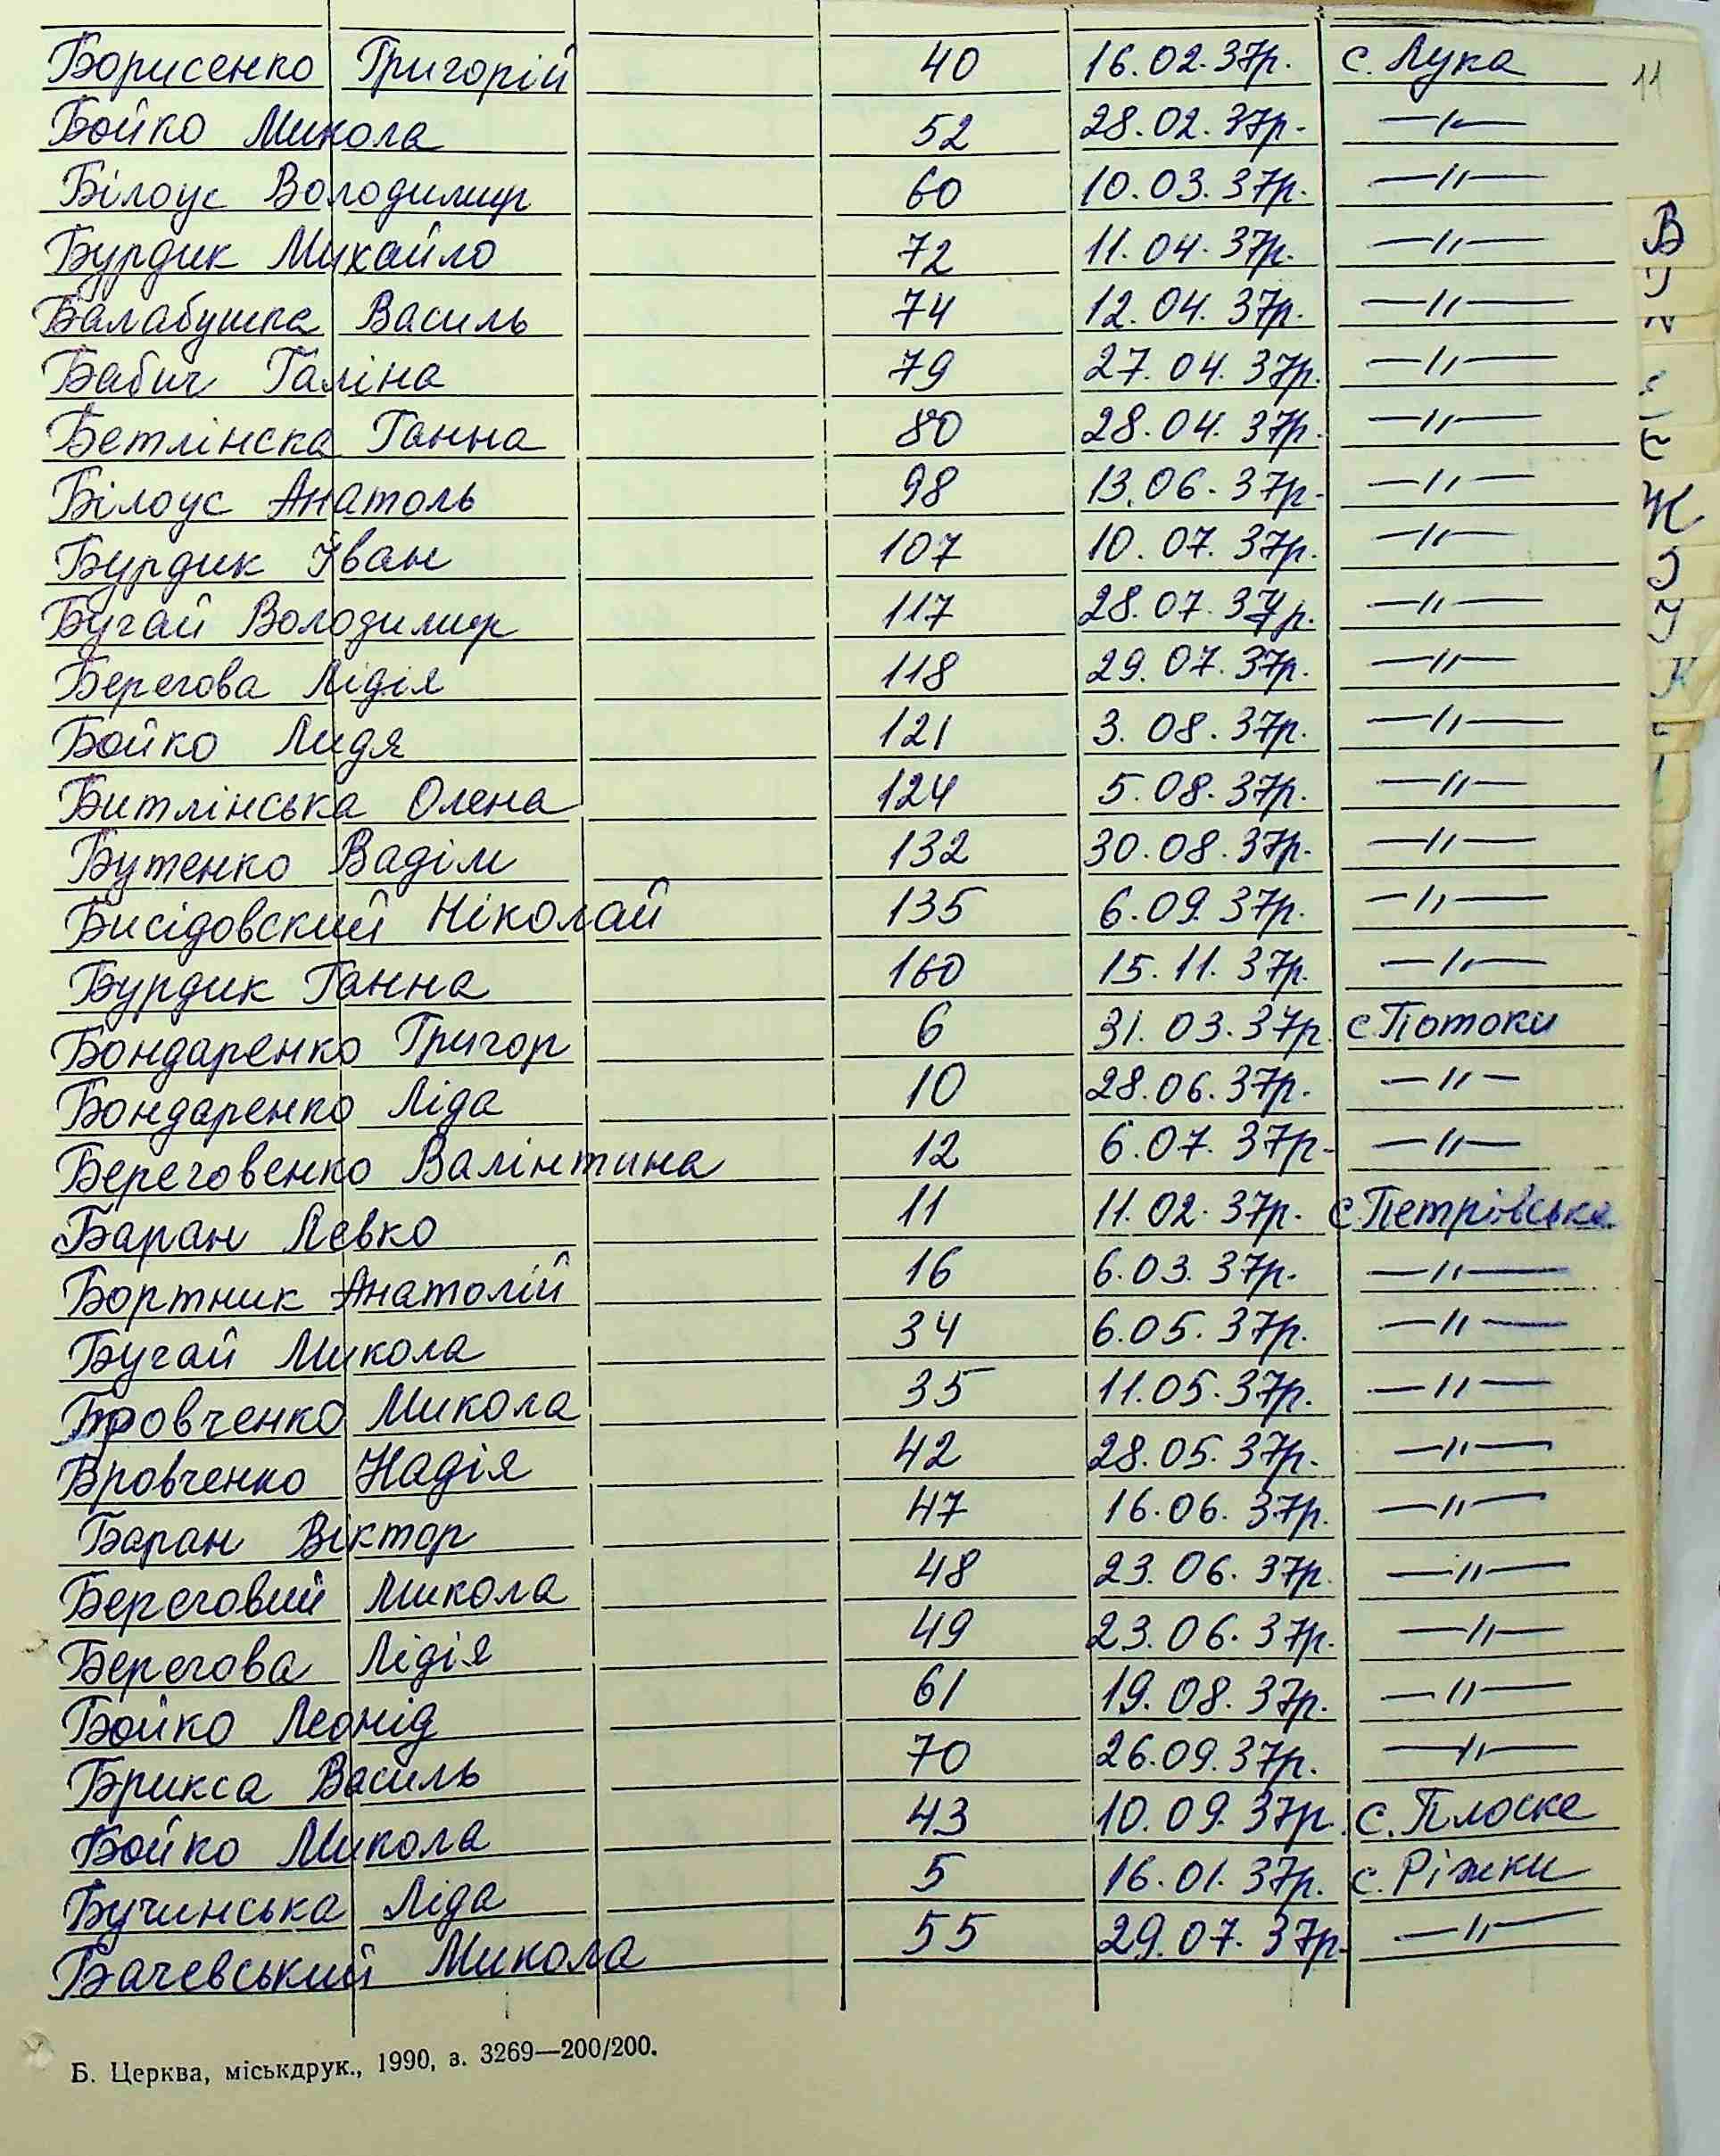 Борисенко Григорій 40 16.02.37р. с. Лука 11
Бойко Микола 52 28.02.37р. —"—
Білоус Володимир 60 10.03.37р. —"—
Бурдик Михайло 72 11.04.37р. —"— В
Балабушка Василь 74 12.04.37р. —"—
Бабич Галіна 79 27.04.37р. —"—
Бетлінска Ганна 80 28.04.37р. —"—
Білоус Анатоль 98 13.06.37р. —"— Ж
Бурдик Іван 107 10.07.37р. —"—
Бугай Володимир 117 28.07.37р. —"—
Берегова Лідія 118 29.07.37р. —"— К
Бойко Лидя 121 3.08.37р. —"—
Битлінська Олена 124 5.08.37р. —"—
Бутенко Вадім 132 30.08.37р. —"—
Бисідовский Ніколай 135 6.09.37р. —"—
Бурдик Ганна 160 15.11.37р. —"—
Бондаренко Григор 6 31.03.37р. с.Потоки
Бондаренко Ліда 10 28.06.37р. —"—
Береговенко Валінтина 12 6.07.37р. —"—
Баран Левко 11 11.02.37р. с.Петрівське
Бортник Анатолій 16 6.03.37р. —"—
Бугай Микола 34 6.05.37р. —"—
Бровченко Микола 35 11.05.37р. —"—
Бровченко Надія 42 28.05.37р. —"—
Баран Віктор 47 16.06.37р. —"—
Береговий Микола 48 23.06.37р. —"—
Берегова Лідія 49 23.06.37р. —"—
Бойко Леонід 61 19.08.37р. —"—
Брикса Василь 70 26.09.37р. —"—
Бойко Микола 43 10.09.37р. с.Плоске
Бучинська Ліда 5 16.01.37р. с.Ріжки
Бачевський Микола 55 29.07.37р. —"—
Б. Церква, міськдрук., 1990, з. 3269—200/200.